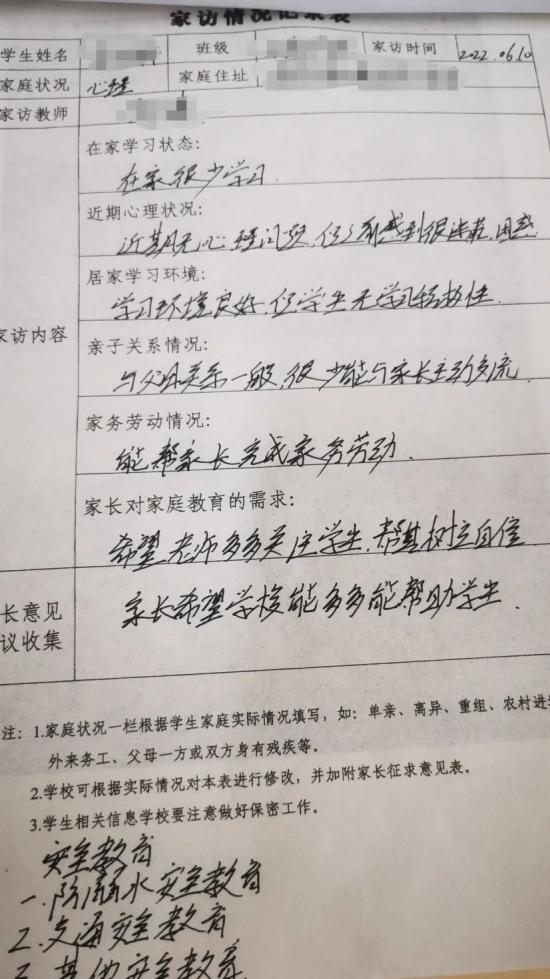 家访情况记录表
学生姓名 班级 家访时间 2022.06.10
家庭状况 心理 家庭住址
家访教师
在家学习状态:
在家很少学习.
近期心理状况:
近期无心理问题,但有感到很迷茫,困惑.
居家学习环境:
学习环境良好,但学生无学习积极性.
家访内容
亲子关系情况:
与父母关系一般,很少能与家长主动交流.
家务劳动情况:
能帮家长完成家务劳动.
家长对家庭教育的需求:
希望老师多多关注学生,帮其树立自信
长意见
议收集
家长希望学校能多多能帮助学生.
注: 1.家庭状况一栏根据学生家庭实际情况填写,如:单亲、离异、重组、农村进
外来务工、父母一方或双方身有残疾等。
2.学校可根据实际情况对本表进行修改,并加附家长征求意见表。
3.学生相关信息学校要注意做好保密工作。
安全教育
一.防溺水安全教育
2.交通安全教育
3.其他安全教育.